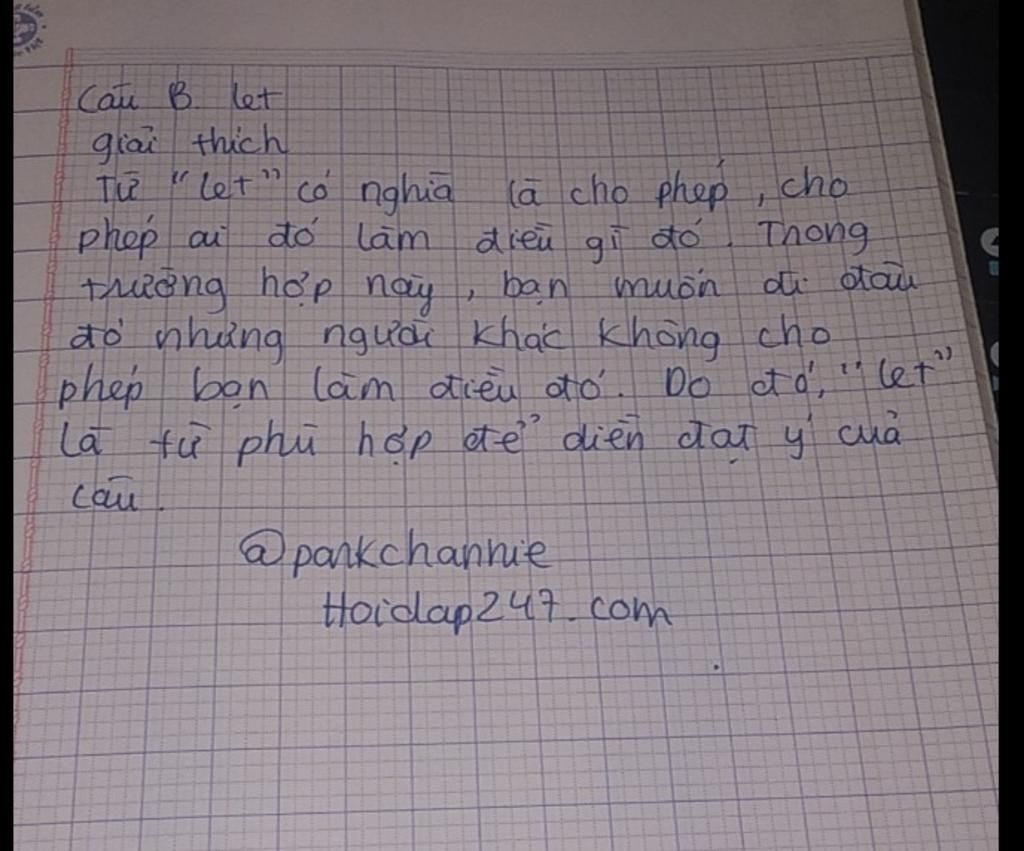 Câu B. let
giải thích
Từ "let" có nghĩa là cho phép, cho
phép ai đó làm điều gì đó. Thong
trường hợp này, bạn muốn đi đâu
đó nhưng người khác không cho
phép bạn làm điều đó. Do đó, "let"
là từ phù hợp để diễn đạt ý của
câu.
@parkchannie
Hoidap247.com